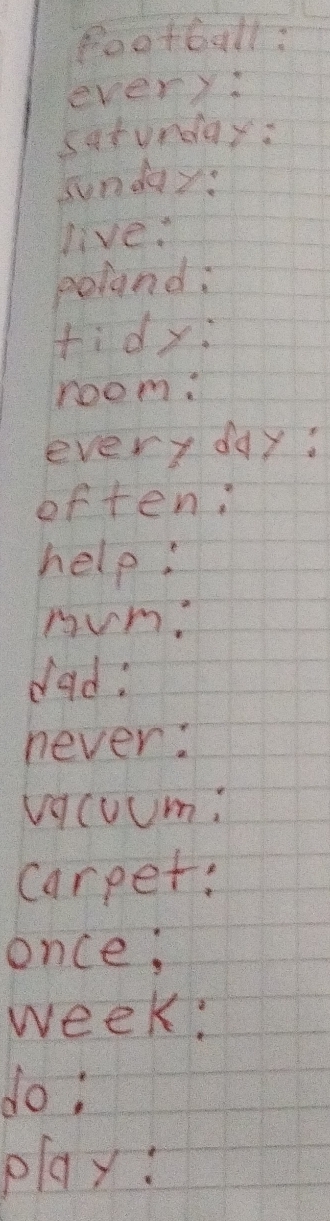 football:
every:
saturday:
sunday:
live:
poland:
tidy:
room:
every day:
often:
help:
mum:
dad:
never:
vacuum:
carpet:
once:
week:
do:
play: